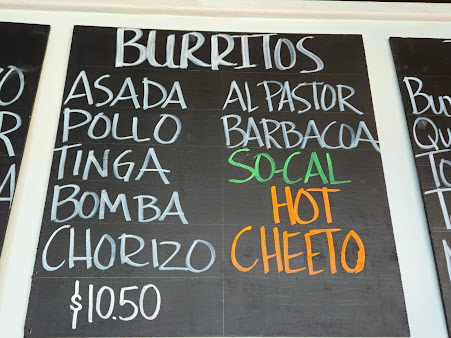 BURRITOS
ASADA
POLLO
TINGA
BOMBA
CHORIZO
$10.50
AL PASTOR
BARBACOA
SO-CAL
HOT
CHEETO